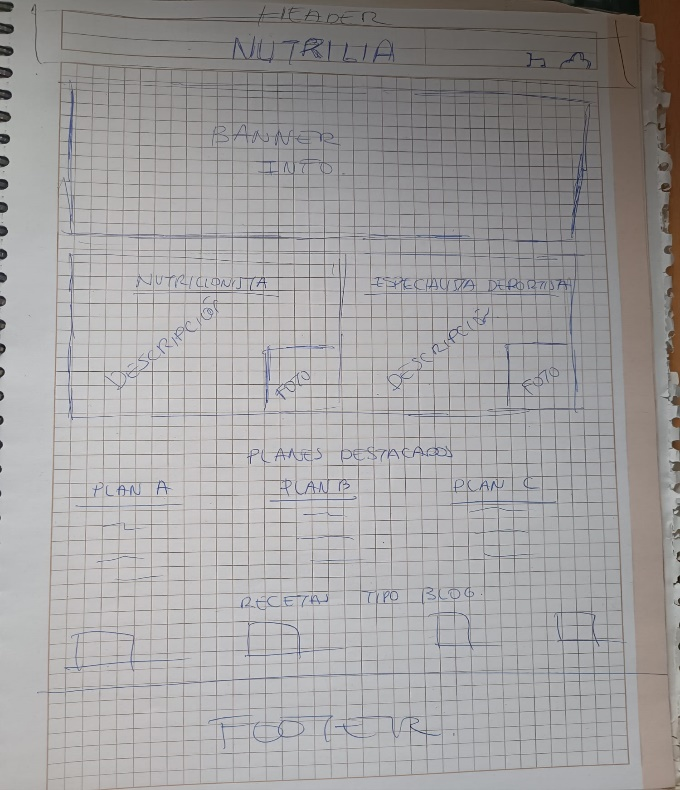 HEADER
NUTRILIA
BANNER
INFO.
NUTRICIONISTA
ESPECIALISTA DEPORTISTA
DESCRIPCIÓN
FOTO
DESCRIPCIÓN
FOTO
PLANES DESTACADOS
PLAN A
PLAN B
PLAN C
RECETAS TIPO BLOG.
FOOTER.